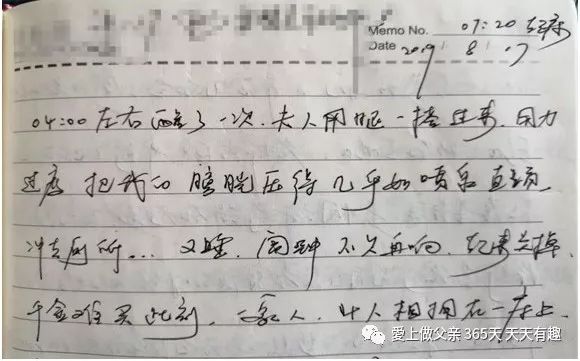 Memo No. 07:20 起床
Date 2019 / 8 / 07
04:00左右醒了一次.夫人用腿一搭过来.用力
过度 把我的膀胱压得几乎如喷泉直
冲去厕所... 又睡.闹钟不久再响.起来关掉.
千金难买此刻. 一家人.4人相拥在一床上.
爱上做父亲 365天 天天有趣